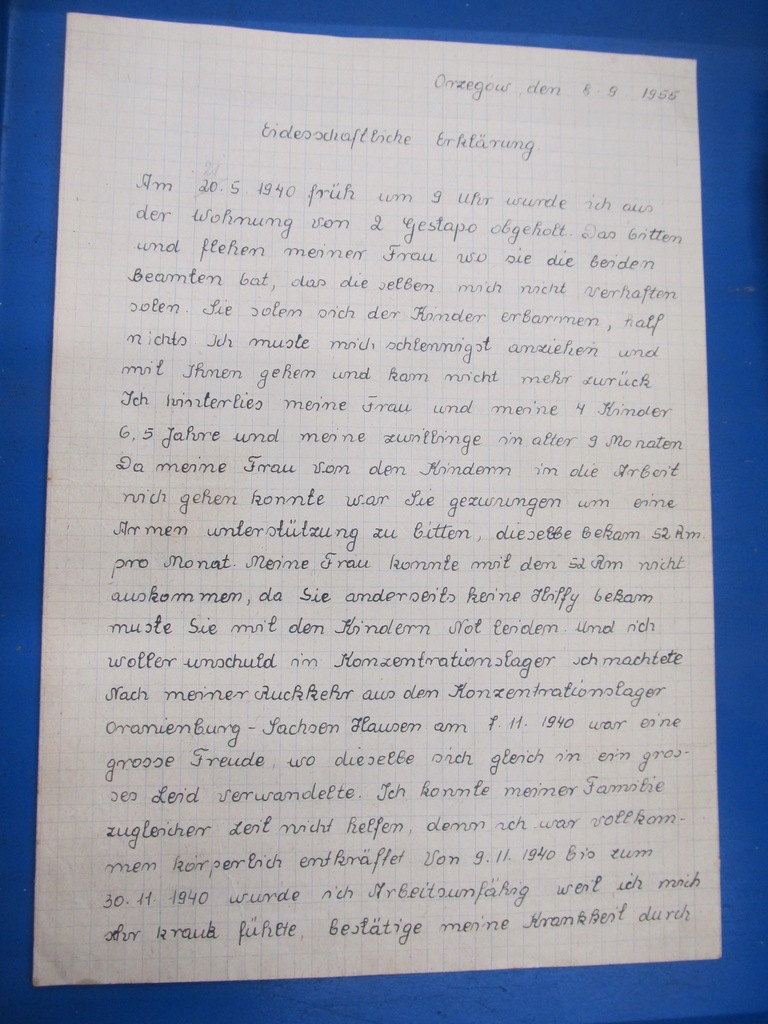 Orzegow, den 8. 9. 1955
Eidesschaftliche Erklärung
21
Am 20.5. 1940 früh um 9 Uhr wurde ich aus
der Wohnung von 2 Gestapo obgeholt. Das bitten
und flehen meiner Frau wo sie die beiden
Beamten bat, das die selben mich nicht verhaften
solen. Sie solen sich der Kinder erbarmen, half
nichts Ich muste mich schlennigst anziehen und
mit Ihnen gehen und kam nicht mehr zurück
Ich hinterlies meine Frau und meine 4 Kinder
6,5 Jahre und meine zwillinge in alter 9 Monaten
Da meine Frau von den Kindern in die Arbeit
nich gehen konnte war Sie gezwungen um eine
Armen unterstützung zu bitten, dieselbe bekam 52 Rm.
pro Monat. Meine Frau konnte mit den 52 Rm nicht
auskommen, da Sie anderseits keine Hilffy bekam
muste Sie mit den Kindern Not leiden. Und ich
woller unschuld in Konzentrationslager schmachtete
Nach meiner Ruckkehr aus den Konzentrationslager
Oranienburg - Sachsen Hausen am 7. 11. 1940 war eine
grosse Freude, wo dieselbe sich gleich in ein gros-
ses Leid verwandelte. Ich konnte meiner Familie
zugleicher Zeit nicht helfen, denn ich war vollkom-
men körperlich entkräftet Von 9.11. 1940 bis zum
30. 11. 1940 wurde ich Arbeitsunfähig weil ich mich
sehr krank fühlte, bestätige meine Krankheit durch